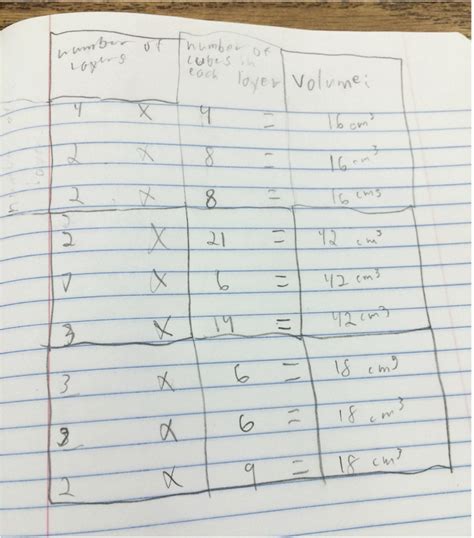 number of layers | number of cubes in each layer | Volume:
4 x 4 = 16 cm³
2 x 8 = 16 cm³
2 x 8 = 16 cm³
2 x 21 = 42 cm³
7 x 6 = 42 cm³
3 x 14 = 42 cm³
3 x 6 = 18 cm³
3 x 6 = 18 cm³
2 x 9 = 18 cm³